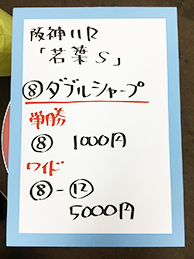 阪神11R
「若葉S」
⑧ダブルシャープ
単勝
⑧ 1000円
ワイド
⑧-⑫
5000円